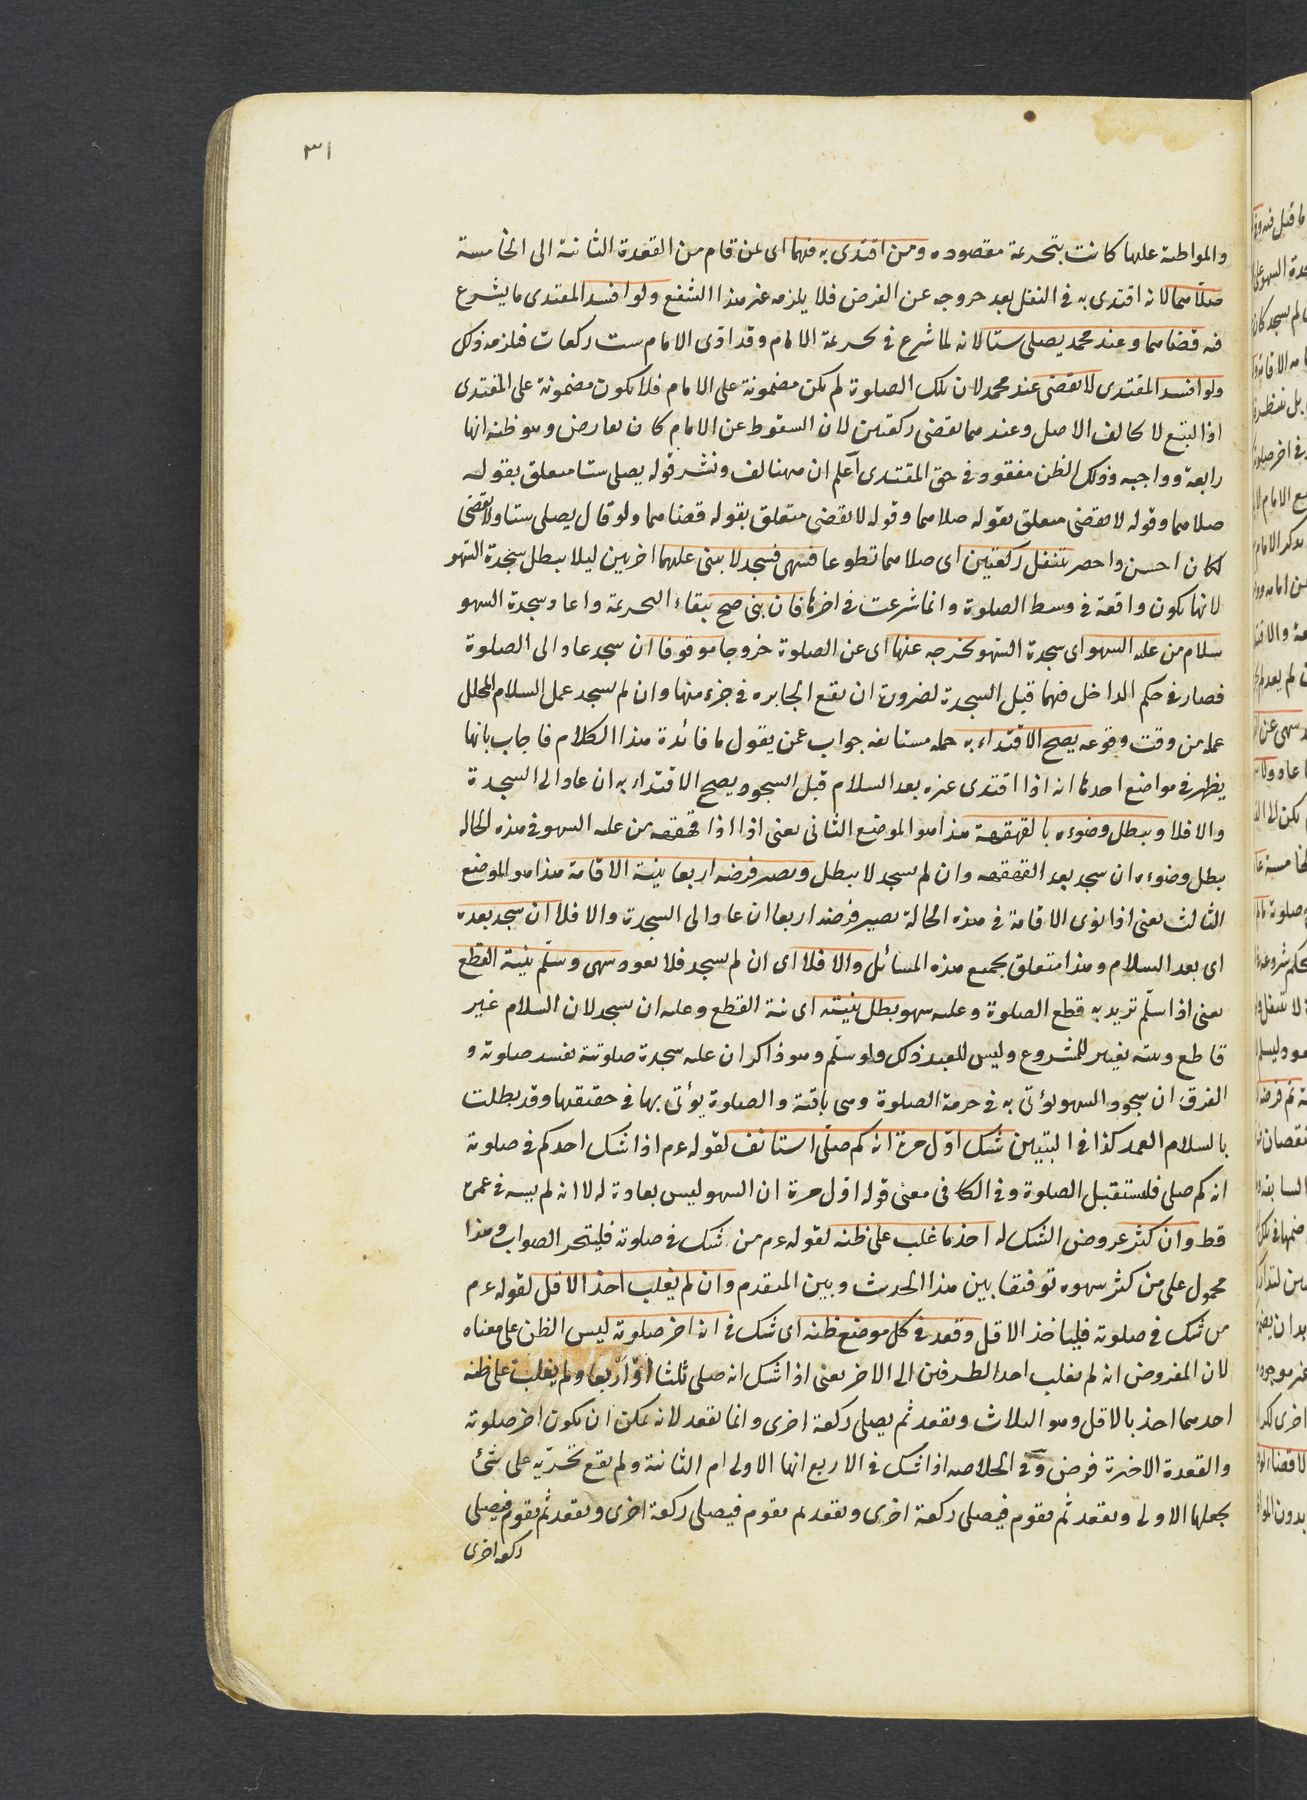 ٣١
والمواظبة عليها كانت بتحريمة مقصوده ومن اقتدى به فيهما اى من قام من القعدة الثانية الى الخامسة
صلاهما لانه اقتدى به فى النفل بعد خروجه عن الفرض فلا يلزمه غير هذا الشفع ولو افسد المقتدى ما يشرع
فيه قضاهما وعند محمد يصلى ستا لانه لما شرع فى تحريمة الامام وقد ادّى الامام ست ركعات فلزمه ذلك
ولو افسد المقتدى لا يقضى عند محمد لان تلك الصلوة لم تكن مضمونة على الامام فلا تكون مضمونة على المقتدى
اذ التبع لا يخالف الاصل وعندهما يقضى ركعتين لان السقوط عن الامام كان لعارض وهو ظنه انها
رابعة وواجبه وذلك الظن مفقود فى حق المقتدى اعلم ان ههنا لف ونشر قوله يصلى ستا متعلق بقوله
صلاهما وقوله لا يقضى متعلق بقوله صلاهما وقوله لا يقضى متعلق بقوله قضاهما ولو قال يصلى ستا ولا يقضى
لكان احسن واحصر تنفل ركعتين اى صلاهما تطوعا فسهى فسجد لا يبنى عليهما اخريين ليلا يبطل سجدة السهو
لانها تكون واقعة فى وسط الصلوة وانما شرعت فى اخرها فان بنى صح ببقاء التحريمة واعاد سجدة السهو
سلام من عليه السهو اى سجدة السهو يخرجه عنها اى عن الصلوة خروجا موقوفا ان سجد عاد الى الصلوة
فصار فى حكم الداخل فيهما قبل السجدة لضرورة ان يقع الجابره فى جزء منها وان لم يسجد عمل السلام المحلل
عمله من وقت وقوعه يصح الاقتداء به جمله مستانفه جواب عمن يقول ما فائدة هذا الكلام فاجاب بانها
يظهر فى مواضع احدها انه اذا اقتدى غيره بعد السلام قبل السجود يصح الاقتداء به ان عاد الى السجدة
والا فلا ويبطل وضوءه بالقهقهة هذا هو الموضع الثانى يعنى اذا اذا قهقهه من عليه السهو فى هذه الحاله
يبطل وضوءه ان سجد بعد القهقهه وان لم يسجد لا يبطل ويصير فرضه اربعا بنية الاقامة هذا هو الموضع
الثالث يعنى اذا نوى الاقامة فى هذه الحالة يصير فرضه اربعا ان عاد الى السجدة والا فلا ان سجد بعده
اى بعد السلام وهذا متعلق بجميع هذه المسائل والا فلا اى ان لم يسجد فلا يعود سهى وسلّم بنية القطع
يعنى اذا سلّم تريد به قطع الصلوة وعليه سهو بطل نيته اى نية القطع وعليه ان يسجد لان السلام غير
قاطع ونيته بغير المشروع وليس للعبد ذلك ولو سلّم وهو ذاكر ان عليه سجدة صلوتية تفسد صلوته و
الفرق ان سجود السهو يؤتى به فى حرمة الصلوة وهى باقية والصلوة يؤتى بها فى حقيقتها وقد بطلت
بالسلام العمد كذا فى التبيين شك اوّل مرة انه كم صلّى استانف لقوله عم اذا شك احدكم فى صلوته
انه كم صلى فليستقبل الصلوة وفى الكافى معنى قوله اول مرة ان السهو ليس بعادة له لا انه لم يسه فى عمره
قط وان كثر عروض الشك له اخذ ما غلب على ظنه لقوله عم من شك فى صلوته فليتحر الصواب وهذا
محمول على من كثر سهوه توفيقا بين هذا الحديث وبين المتقدم وان لم يغلب اخذ الاقل لقوله عم
من شك فى صلوته فلياخذ الاقل وقعد فى كل موضع ظنه اى شك فى انه اخر صلوته ليس الظن على معناه
لان المفروض انه لم يغلب احد الطرفين الى الاخر يعنى اذا شك انه صلى ثلثا او اربعا ولم يغلب على ظنه
احدهما اخذ بالاقل وهو الثلاث ويقعد ثم يصلى ركعة اخرى وانما يقعد لانه يمكن ان تكون اخر صلوته
والقعدة الاخيرة فرض وفى الخلاصه اذا شك فى الاربع انها الاولى ام الثانية ولم يقع تحرّيه على شئ
يجعلها الاولى ويقعد ثم يقوم فيصلى ركعة اخرى ويقعد ثم يقوم فيصلى ركعة اخرى ويقعد ثم يقوم فيصلى
ركعه اخرى